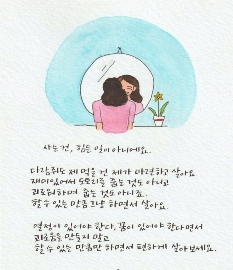 사는건, 힘든 일이 아니에요.
다람쥐도 제 먹을 건 제가 마련하고 살아요
재미있어서 도토리를 줍는 것도 아니고
괴로워하며 줍는 것도 아니죠.
할 수 있는 만큼 그냥 하면서 살아요.
열정이 있어야 한다, 꿈이 있어야 한다면서
괴로움을 만들지 말고
할 수 있는 만큼만 하면서 편하게 살아보세요.